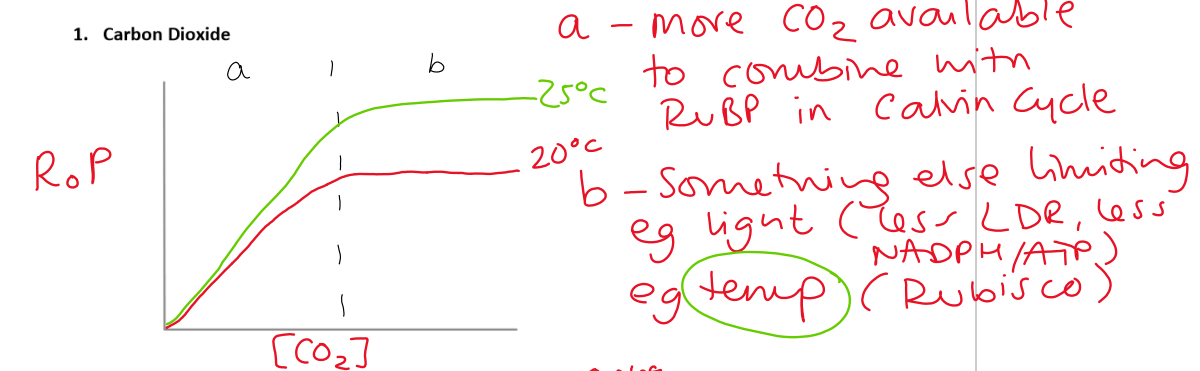 1. Carbon Dioxide
a b
25°C
20°C
RoP
[CO₂]
a - more CO₂ available
to combine with
RuBP in Calvin Cycle
b - Something else limiting
eg light (less LDR, less
NADPH/ATP)
eg temp (Rubisco)